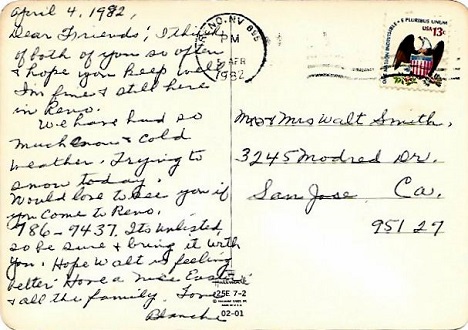 April 4, 1982,
Dear Friends, I think
of both of you so often
& hope you keep well.
I'm fine & still here
in Reno.
We have had so
much snow & cold
weather. Trying to
snow today.
Would love to see you if
you come to Reno.
786-9437. Its unlisted,
so be sure & bring it with
you. Hope Walt is feeling
better. Have a nice Easter
& all the family. Love
Blanche
RENO, NV 895
PM
APR
1982
E PLURIBUS UNUM
USA 13c
Mr & Mrs Walt Smith,
3245 Modred Dr.
San Jose, Ca.
95127
Hallmark
25E 7-2
02-01